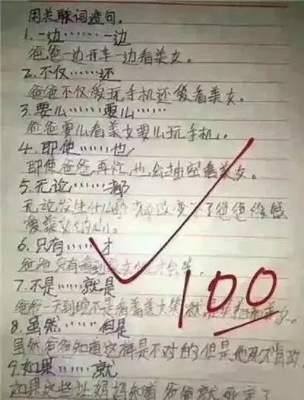 用关联词造句.
1.一边……一边
爸爸一边开车一边看美女。
2.不仅……还
爸爸不仅爱玩手机还爱看美女。
3.要么……要么……
爸爸要么看美女要么玩手机。
4.即使……也
即使爸爸再忙,也会抽空看美女。
5.无论……都
无论发生什么都改变不了爸爸
爱美女的心。
6.只有……才
爸爸只有看到美女
7.不是……就是
爸爸一天到晚不是看美女
8.虽然……但是
虽然爸爸知道这样是不对的但是他
9.如果……就
如果这些让妈妈知道
100